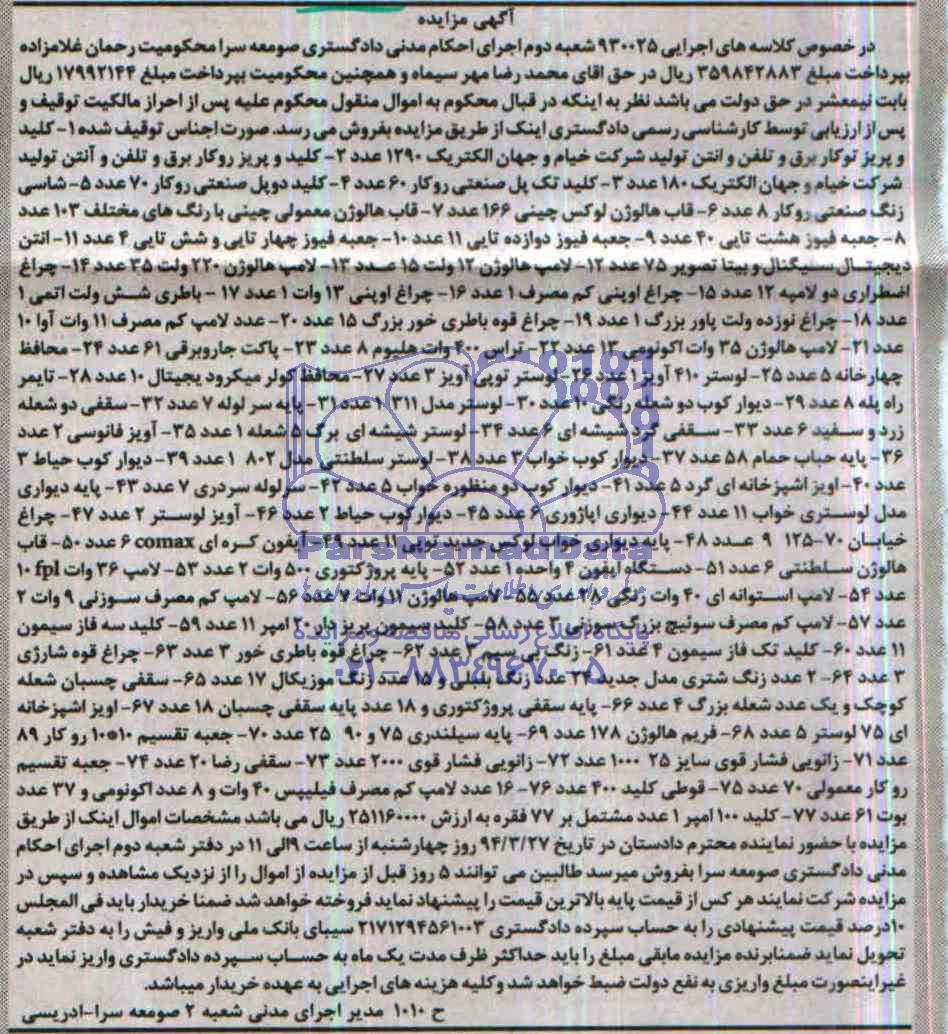 آگهی مزایده
در خصوص کلاسه های اجرایی ۹۳۰۰۲۵ شعبه دوم اجرای احکام مدنی دادگستری صومعه سرا محکومیت رحمان غلامزاده
بپرداخت مبلغ ۳۵۹۸۴۲۸۸۳ ریال در حق اقای محمد رضا مهر سیماه و همچنین محکومیت بپرداخت مبلغ ۱۷۹۹۲۱۴۴ ریال
بابت نیمعشر در حق دولت می باشد نظر به اینکه در قبال محکوم به اموال منقول محکوم علیه پس از احراز مالکیت توقیف و
پس از ارزیابی توسط کارشناسی رسمی دادگستری اینک از طریق مزایده بفروش می رسد. صورت اجناس توقیف شده ۱- کلید
و پریز توکار برق و تلفن و انتن تولید شرکت خیام و جهان الکتریک ۱۲۹۰ عدد ۲- کلید و پریز روکار برق و تلفن و آنتن تولید
شرکت خیام و جهان الکتریک ۱۸۰ عدد ۳- کلید تک پل صنعتی روکار ۶۰ عدد ۴- کلید دوپل صنعتی روکار ۷۰ عدد ۵- شاسی
زنگ صنعتی روکار ۸ عدد ۶- قاب هالوژن لوکس چینی ۱۶۶ عدد ۷- قاب هالوژن معمولی چینی با رنگ های مختلف ۱۰۳ عدد
۸- جعبه فیوز هشت تایی ۴۰ عدد ۹- جعبه فیوز دوازده تایی ۱۱ عدد ۱۰- جعبه فیوز چهار تایی و شش تایی ۴ عدد ۱۱- انتن
دیجیتال سیگنال و بیتا تصویر ۷۵ عدد ۱۲- لامپ هالوژن ۱۲ ولت ۱۵ عدد ۱۳- لامپ هالوژن ۲۲۰ ولت ۳۵ عدد ۱۴- چراغ
اضطراری دو لامپه ۱۲ عدد ۱۵- چراغ اوپنی کم مصرف ۱ عدد ۱۶- چراغ اوپنی ۱۳ وات ۱ عدد ۱۷- باطری شش ولت اتمی ۱
عدد ۱۸- چراغ نوزده ولت پاور بزرگ ۱ عدد ۱۹- چراغ قوه باطری خور بزرگ ۱۵ عدد ۲۰- عدد لامپ کم مصرف ۱۱ وات آوا ۱۰
عدد ۲۱- لامپ هالوژن ۳۵ وات اکونومی ۱۳ عدد ۲۲- تراس ۴۰۰ وات هلیوم ۸ عدد ۲۳- پاکت جاروبرقی ۶۱ عدد ۲۴- محافظ
چهارخانه ۵ عدد ۲۵- لوستر ۴۱۰ آویز ۱ عدد ۲۶- لوستر توپی آویز ۳ عدد ۲۷- محافظ کولر میکرود یجیتال ۱۰ عدد ۲۸- تایمر
راه پله ۸ عدد ۲۹- دیوار کوب دو شعله رنگی ۱۰ عدد ۳۰- لوستر مدل ۳۱۱ ۱ عدد ۳۱- پایه سر لوله ۷ عدد ۳۲- سقفی دو شعله
زرد و سفید ۶ عدد ۳۳- سقفی گرد شیشه ای ۶ عدد ۳۴- لوستر شیشه ای برگ ۵ شعله ۱ عدد ۳۵- آویز فانوسی ۲ عدد
۳۶- پایه حباب حمام ۵۸ عدد ۳۷- دیوار کوب خواب ۳ عدد ۳۸- لوستر سلطنتی مدل ۸۰۲ ۱ عدد ۳۹- دیوار کوب حیاط ۳
عدد ۴۰- اویز اشپزخانه ای گرد ۵ عدد ۴۱- دیوار کوب دو منظوره خواب ۵ عدد ۴۲- سر لوله سردری ۷ عدد ۴۳- پایه دیواری
مدل لوستری خواب ۱۱ عدد ۴۴- دیواری اپاژوری ۶ عدد ۴۵- دیوار کوب حیاط ۲ عدد ۴۶- آویز لوستر ۲ عدد ۴۷- چراغ
خیابان ۷۰-۱۲۵ ۹ عدد ۴۸- پایه دیواری خواب لوکس جدید توپی ۱۱ عدد ۴۹- آیفون کره ای comax ۶ عدد ۵۰- قاب
هالوژن سلطنتی ۶ عدد ۵۱- دستگاه ایفون ۴ واحده ۱ عدد ۵۲- پایه پروژکتوری ۵۰۰ وات ۲ عدد ۵۳- لامپ ۳۶ وات fpl ۱۰
عدد ۵۴- لامپ استوانه ای ۴۰ وات رنگی ۲۸ عدد ۵۵- لامپ هالوژن ۱۱ وات ۷ عدد ۵۶- لامپ کم مصرف سوزنی ۹ وات ۲
عدد ۵۷- لامپ کم مصرف سوئیچ بزرگ سوزنی ۳ عدد ۵۸- کلید سیمون پریز دار ۲۰ امپر ۱۱ عدد ۵۹- کلید سه فاز سیمون
۱۱ عدد ۶۰- کلید تک فاز سیمون ۴ عدد ۶۱- زنگ بی سیم ۳ عدد ۶۲- چراغ قوه باطری خور ۳ عدد ۶۳- چراغ قوه شارژی
۳ عدد ۶۴- ۲ عدد زنگ شتری مدل جدید ۲۴ عدد زنگ بلبلی و ۱۵ عدد زنگ موزیکال ۱۷ عدد ۶۵- سقفی چسبان شعله
کوچک و یک عدد شعله بزرگ ۴ عدد ۶۶- پایه سقفی پروژکتوری و ۱۸ عدد پایه سقفی چسبان ۱۸ عدد ۶۷- اویز اشپزخانه
ای ۷۵ لوستر ۵ عدد ۶۸- فریم هالوژن ۱۷۸ عدد ۶۹- پایه سیلندری ۷۵ و ۹۰ ۲۵ عدد ۷۰- جعبه تقسیم ۱۰*۱۰ رو کار ۸۹
عدد ۷۱- زانویی فشار قوی سایز ۲۵ ۱۰۰۰ عدد ۷۲- زانویی فشار قوی ۲۰۰۰ عدد ۷۳- سقفی رضا ۲۰ عدد ۷۴- جعبه تقسیم
رو کار معمولی ۷۰ عدد ۷۵- قوطی کلید ۴۰۰ عدد ۷۶- ۱۶ عدد لامپ کم مصرف فیلیپس ۴۰ وات و ۸ عدد اکونومی و ۳۷ عدد
بوت ۶۱ عدد ۷۷- کلید ۱۰۰ امپر ۱ عدد مشتمل بر ۷۷ فقره به ارزش ۲۵۱۱۶۰۰۰۰ ریال می باشد مشخصات اموال اینک از طریق
مزایده با حضور نماینده محترم دادستان در تاریخ ۹۴/۳/۲۷ روز چهارشنبه از ساعت ۹الی ۱۱ در دفتر شعبه دوم اجرای احکام
مدنی دادگستری صومعه سرا بفروش میرسد طالبین می توانند ۵ روز قبل از مزایده از اموال را از نزدیک مشاهده و سپس در
مزایده شرکت نمایند هر کس از قیمت پایه بالاترین قیمت را پیشنهاد نماید فروخته خواهد شد ضمنا خریدار باید فی المجلس
۱۰درصد قیمت پیشنهادی را به حساب سپرده دادگستری ۲۱۷۱۲۹۴۵۶۱۰۰۳ سیبای بانک ملی واریز و فیش را به دفتر شعبه
تحویل نماید ضمنابرنده مزایده مابقی مبلغ را باید حداکثر ظرف مدت یک ماه به حساب سپرده دادگستری واریز نماید در
غیراینصورت مبلغ واریزی به نفع دولت ضبط خواهد شد وکلیه هزینه های اجرایی به عهده خریدار میباشد.
ح ۱۰۱۰ مدیر اجرای مدنی شعبه ۲ صومعه سرا-ادریسی
ParsNamadData
پایگاه اطلاع رسانی مناقصه و مزایده
۰۲۱-۸۸۳۴۹۶۷۰-۵